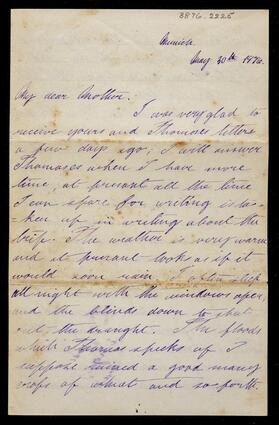 8876.2225
Munich.
May 30th 1876.
My dear Mother:
I was very glad to
receive yours and Thomases letters
a few days ago; I will answer
Thomases when I have more
time, at presant all the time
I can spare for writing is ta-
ken up in writing about the
trip. The weather is very warm
and at presant looks as if it
would soon rain. I often sleep
all night with the windows open,
and the blinds down to shut
out the draught. The floods
which Thomas speks of I
suppose ruined a good many
crops of wheat and so-forth